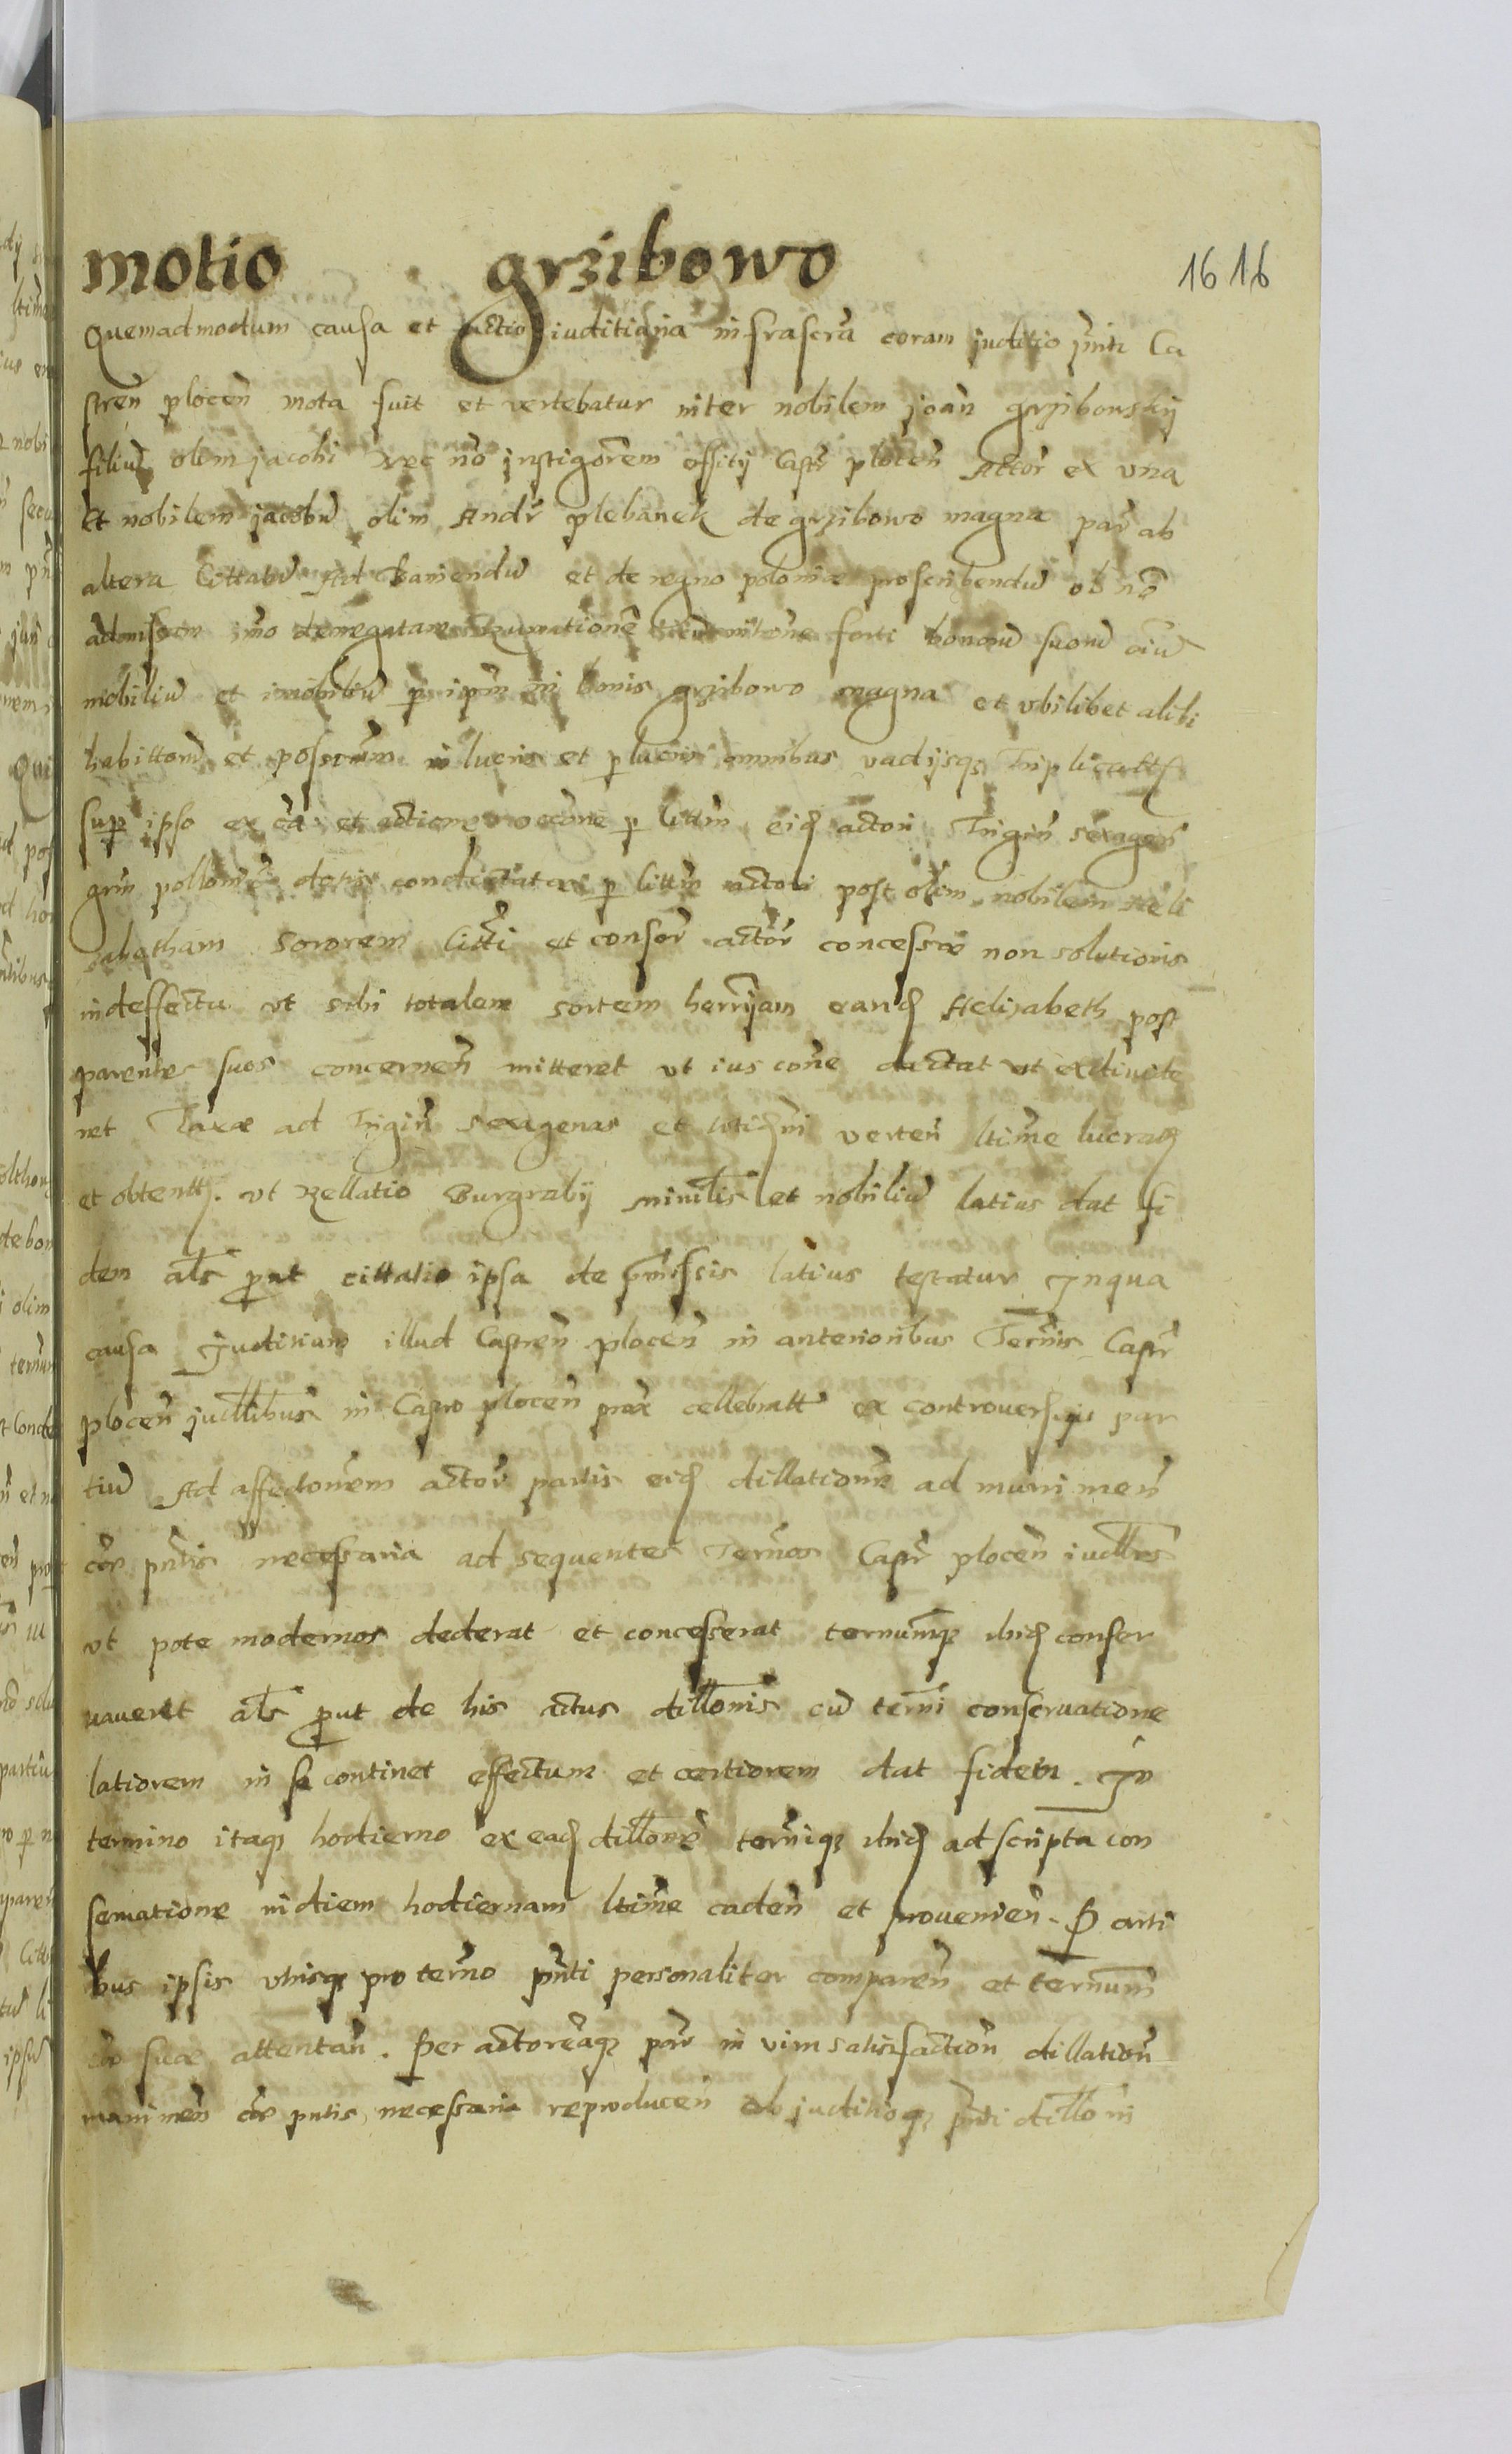 motio grzibowo
1616
Quemadmodum causa et actio iuditiaria infrascrã coram juditio pñti Ca
stren plocen mota fuit et vertebatur inter nobilem joan̄ grzibowskij
filiũ olim jacobi nec nõ instigorem offitij Castr plocen Actor ex vna
Et nobilem jacobũ olim Andr plebanek de grzibowo magna par ab
altera Cittatũ Ad Baniendũ et de regno poloniæ proscribendũ ob nõ
admissam imo denegatam Rumatione forti bonorũ suorũ oim̃
mobiliũ et imobiliũ p ipm in bonis grzibowo magna et vbilibet alibi
habittorũ et possessorum in lucris et p lucris omnibus vadijsq Triplicatt
sup ipso ex cã et actione p Cittm eid actori Trigin sexagen
grm pollonic dotis p Cittm actori post olim nobilem Heli
zabetham sororem Citti et consor actor concessæ non solutionis
in deffectu vt sibi totalem sortem herrijam eand Helizabeth post
parentes suos concernen mitteret vt ius cone dictat vt extunc te
net Taxæ ad Trigin sexagenas et verten ltime lucrat
et obtentt. vt Rellatio Burgrabij minilis et nobiliũ latius dat fi
dem als put cittatio ipsa de pmissis latius testatur Jn qua
causa Juditium illud Castren plocen in anterioribus Termis Castr
plocen judlibus in Castro plocen prox cellebratt ex controuersijs par
tiũ Ad affectonem actor partis eid dillationem ad munimen
cse pntis necessaria ad sequentes Termos Castr plocen iudles
vt pote modernos dederat et concesserat terminumq ibid conser
uauerat als put de his actus dillonis cũ termi conseruatione
latiorem in se continet effectum et certiorem dat fidem. Jn
termino itaq hodierno ex ead dillone termiq ibid adscripta con
seruatione in diem hodiernam ltime caden et prouenien. Parti
bus ipsis vtrisq pro termo pnti personaliter comparen et terminum
cse suæ attentan. Per actoreaq par in vim satisfaction dillation
munimen cse pntis necessaria reproducen ab juditioq pnti dilloni